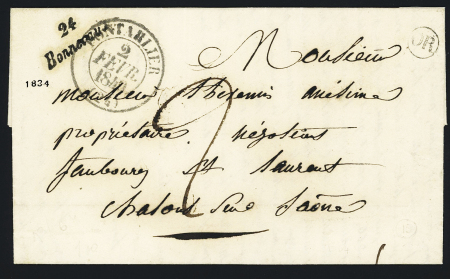 24
Bonnevaux
PONTARLIER
2
FEVR.
184
OR
1834
Monsieur
monsieur anésime
propriétaire négotient
faubourg St Laurent
chalons sur Saône
2